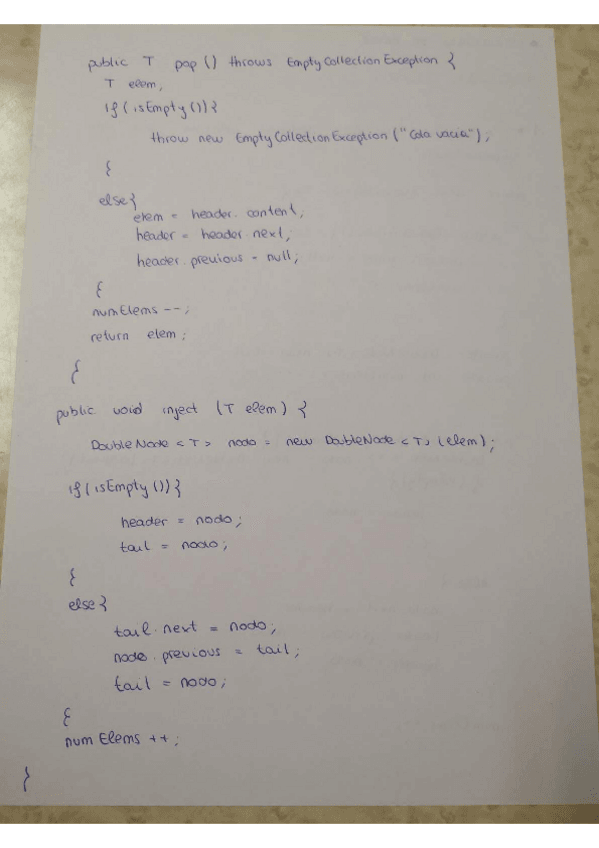 public T pop () throws EmptyCollectionException {
T elem;
if (isEmpty ()) {
throw new EmptyCollectionException ("Cola vacía");
}
else {
elem = header.content;
header = header.next;
header.previous = null;
}
numElems --;
return elem;
}
public void inject (T elem) {
DoubleNode <T> nodo = new DoubleNode <T> (elem);
if (isEmpty ()) {
header = nodo;
tail = nodo;
}
else {
tail.next = nodo;
nodo.previous = tail;
tail = nodo;
}
numElems ++;
}